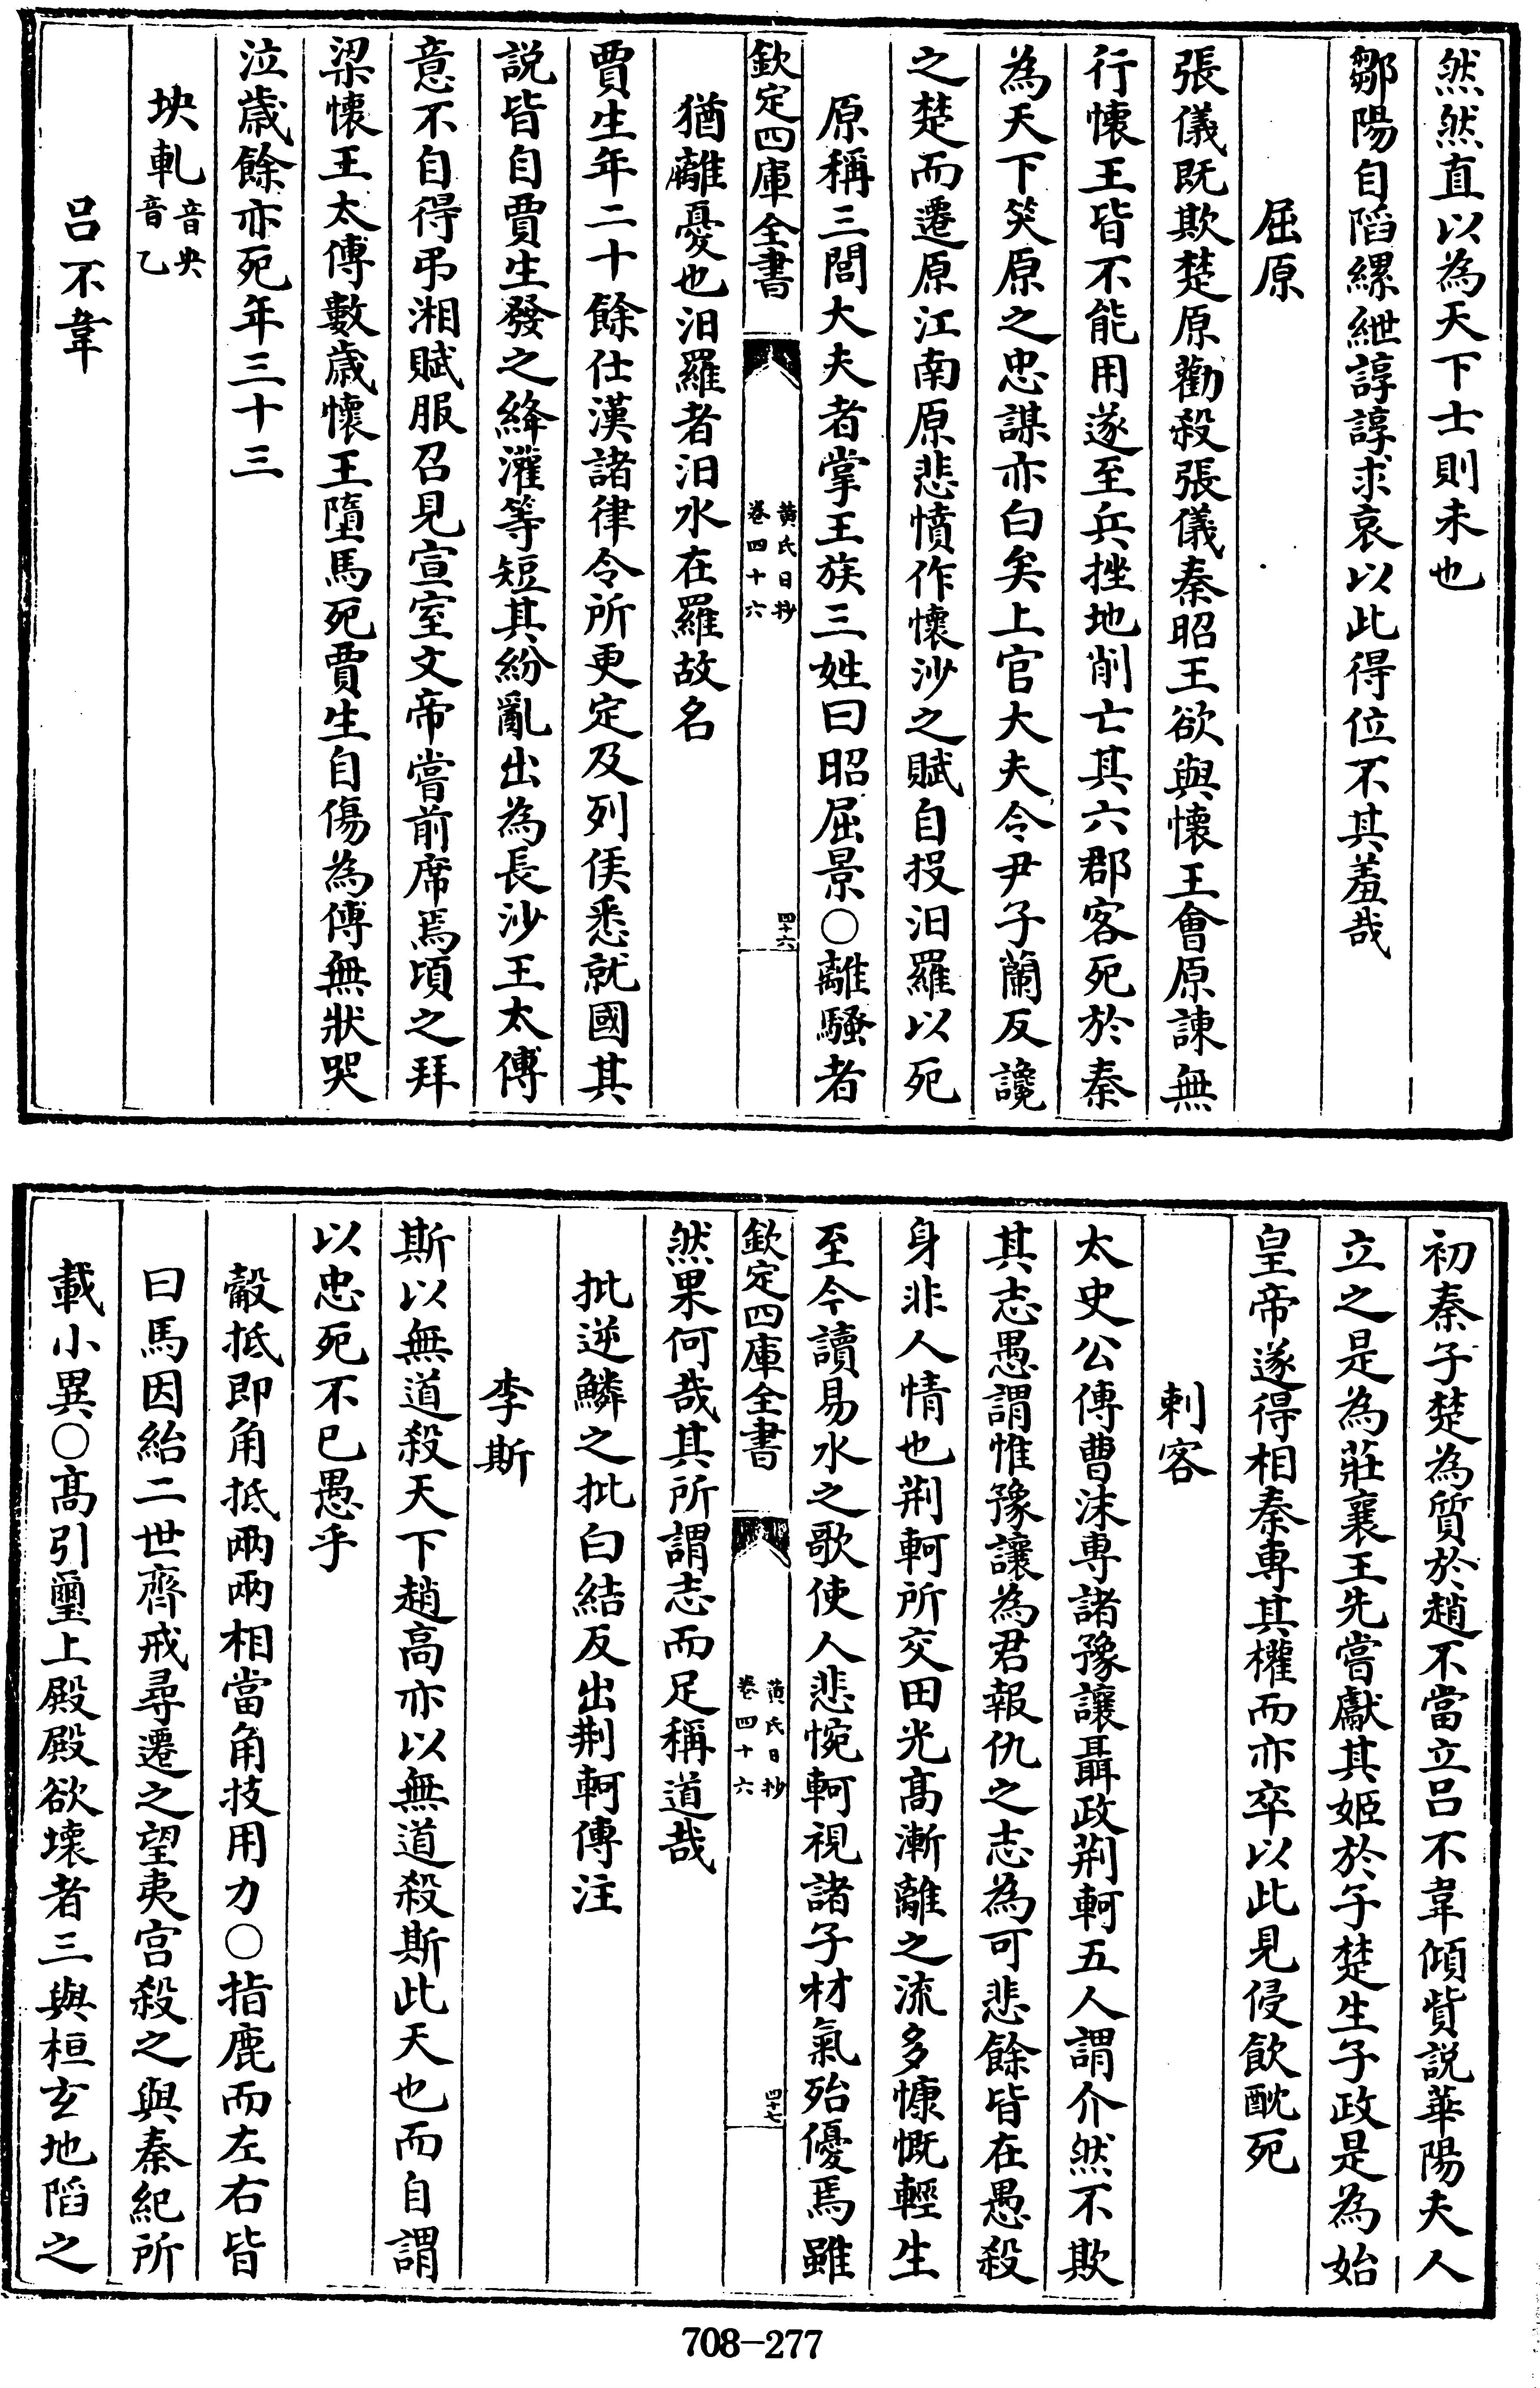 然然直以為天下士則未也
鄒陽自陷縲紲諄諄求哀以此得位不其羞哉
屈原
張儀既欺楚原勸殺張儀秦昭王欲與懷王會原諫無
行懷王皆不能用遂至兵挫地削亡其六郡客死於秦
為天下笑原之忠謀亦白矣上官大夫令尹子蘭反讒
之楚而遷原江南原悲憤作懷沙之賦自投汨羅以死
原稱三閭大夫者掌王族三姓曰昭屈景○離騷者
欽定四庫全書
黃氏日抄
卷四十六
四十六
猶離憂也汨羅者汨水在羅故名
賈生年二十餘仕漢諸律令所更定及列侯悉就國其
説皆自賈生發之絳灌等短其紛亂出為長沙王太傅
意不自得弔湘賦服召見宣室文帝嘗前席焉頃之拜
梁懷王太傅數歲懷王墮馬死賈生自傷為傅無狀哭
泣歲餘亦死年三十三
坱軋音央音乙
呂不韋
初秦子楚為質於趙不當立呂不韋傾貲説華陽夫人
立之是為莊襄王先嘗獻其姬於子楚生子政是為始
皇帝遂得相秦專其權而亦卒以此見侵飲酖死
刺客
太史公傳曹沫專諸豫讓聶政荆軻五人謂介然不欺
其志愚謂惟豫讓為君報仇之志為可悲餘皆在愚殺
身非人情也荆軻所交田光髙漸離之流多慷慨輕生
至今讀易水之歌使人悲惋軻視諸子材氣殆優焉雖
欽定四庫全書
黃氏日抄
卷四十六
四十七
然果何哉其所謂志而足稱道哉
批逆鱗之批白結反出荆軻傳注
李斯
斯以無道殺天下趙高亦以無道殺斯此天也而自謂
以忠死不已愚乎
觳抵即角抵兩兩相當角技用力○指鹿而左右皆
曰馬因紿二世齊戒尋遷之望夷宮殺之與秦紀所
載小異○髙引璽上殿殿欲壊者三與桓玄地陷之
708-277